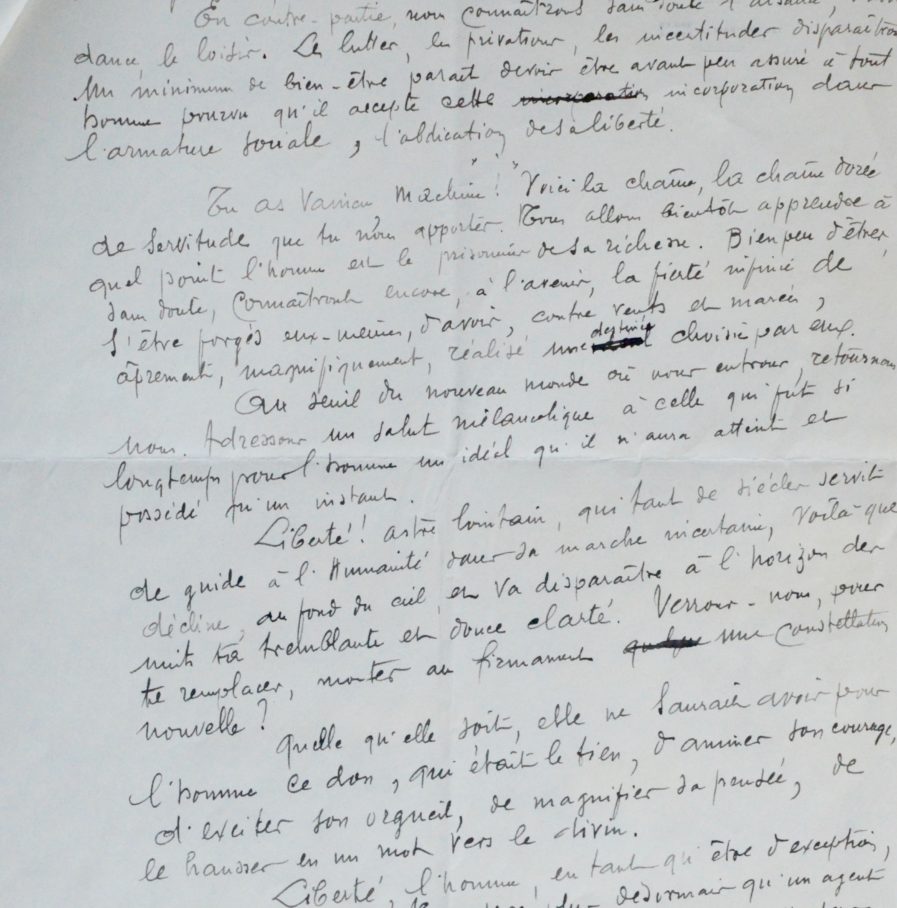 En contre-partie, nous connaîtrons sans doute l'aisance,
dans le loisir. Les luttes, les privations, les incertitudes disparaîtront
Un minimum de bien-être paraît devoir être avant peu assuré à tout
homme pourvu qu'il accepte cette incorporation dans
l'armature sociale, l'abdication de sa liberté.
Tu as vaincu "Machine"! Voici la chaîne, la chaîne dorée
de servitude que tu nous apportes. Nous allons bientôt apprendre à
quel point l'homme est le prisonnier de sa richesse. Bien peu d'êtres
sans doute, connaîtront encore, à l'avenir, la fierté infinie de
s'être forgés eux-mêmes, d'avoir, contre vents et marées,
âprement, magnifiquement, réalisé une destinée choisie par eux.
Au seuil du nouveau monde où nous entrons, retournons
nous. Adressons un salut mélancolique à celle qui fut si
longtemps pour l'homme un idéal qu'il n'aura atteint et
possédé qu'un instant.
Liberté! astre lointain, qui tant de siècles servit
de guide à l'Humanité dans sa marche incertaine, voilà que
décline, au fond du ciel, et va disparaître à l'horizon des
nuits ta tremblante et douce clarté. Verrons-nous, pour
te remplacer, monter au firmament une constellation
nouvelle?
Quelle qu'elle soit, elle ne saurait avoir pour
l'homme ce don, qui était le tien, d'animer son courage,
d'exciter son orgueil, de magnifier sa pensée, de
le hausser en un mot vers le divin.
Liberté, l'homme, en tant qu'être d'exception,
désormais qu'un agent